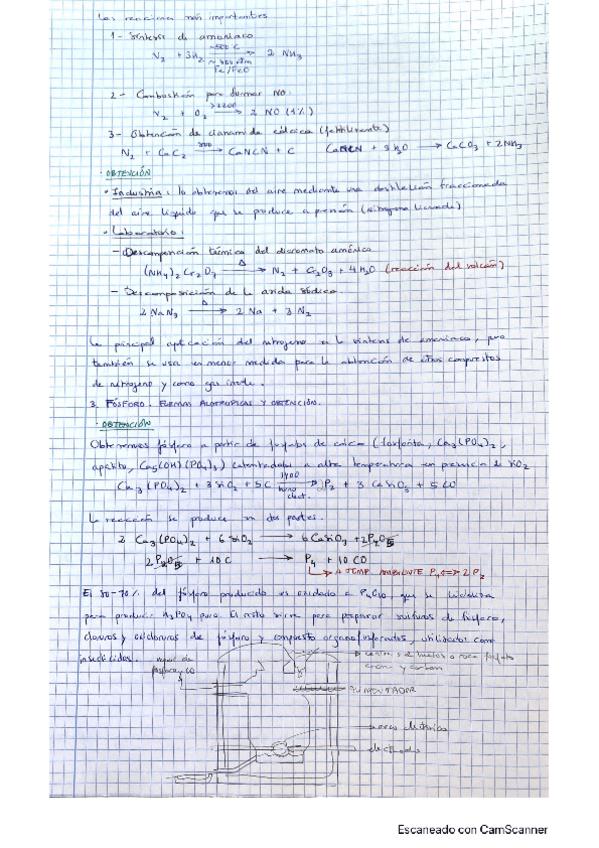 Las reacciones más importantes
1- Síntesis de amoniaco
N₂ + 3H₂ ⟶ 2 NH₃
Fe/FeO
2- Combustión para formar NO.
N₂ + O₂ ⟶ 2 NO (1%)
3- Obtención de cianamida cálcica (fertilizante)
N₂ + CaC₂ ⟶ CaNCN + C CaNCN + 3H₂O ⟶ CaCO₃ + 2NH₃
· OBTENCIÓN
• Industria: lo obtenemos del aire mediante una destilación fraccionada
del aire líquido que se produce a presión (nitrógeno licuado)
• Laboratorio:
- Descomposición térmica del dicromato amónico
(NH₄)₂Cr₂O₇ Δ⟶ N₂ + Cr₂O₃ + 4H₂O (reacción del volcán)
- Descomposición de la azida sódica.
2 NaN₃ Δ⟶ 2 Na + 3 N₂
La principal aplicación del nitrógeno es la síntesis de amoniaco, pero
también se usa en menor medida para la obtención de otros compuestos
de nitrógeno y como gas inerte.
3. FÓSFORO. FORMAS ALOTRÓPICAS Y OBTENCIÓN.
· OBTENCIÓN
Obtenemos fósforo a partir de fosfatos de calcio (fosforita, Ca₃(PO₄)₂,
apatito, Ca₅(OH)(PO₄)₃) calentándolos a altas temperaturas en presencia de SiO₂
Ca₃(PO₄)₂ + 3 SiO₂ + 5C ⟶ P₂ + 3 CaSiO₃ + 5 CO
1400
horno
elect.
La reacción se produce en dos partes.
2 Ca₃(PO₄)₂ + 6 SiO₂ ⟶ 6 CaSiO₃ + 2P₂O₅
2P₂O₅ + 10C ⟶ P₄ + 10 CO
A TEMP. AMBIENTE P₄ ⟷ 2P₂
El 80-90% del fósforo producido es oxidado a P₄O₁₀ que se hidroliza
para producir H₃PO₄ puro. El resto sirve para preparar sulfuros de fósforo,
cloruros y oxicloruros de fósforo y compuestos organofosforados, utilizados como
insecticidas.
vapor de
fósforo, CO
y carbón
arco eléctrico
electrodo
Escaneado con CamScanner